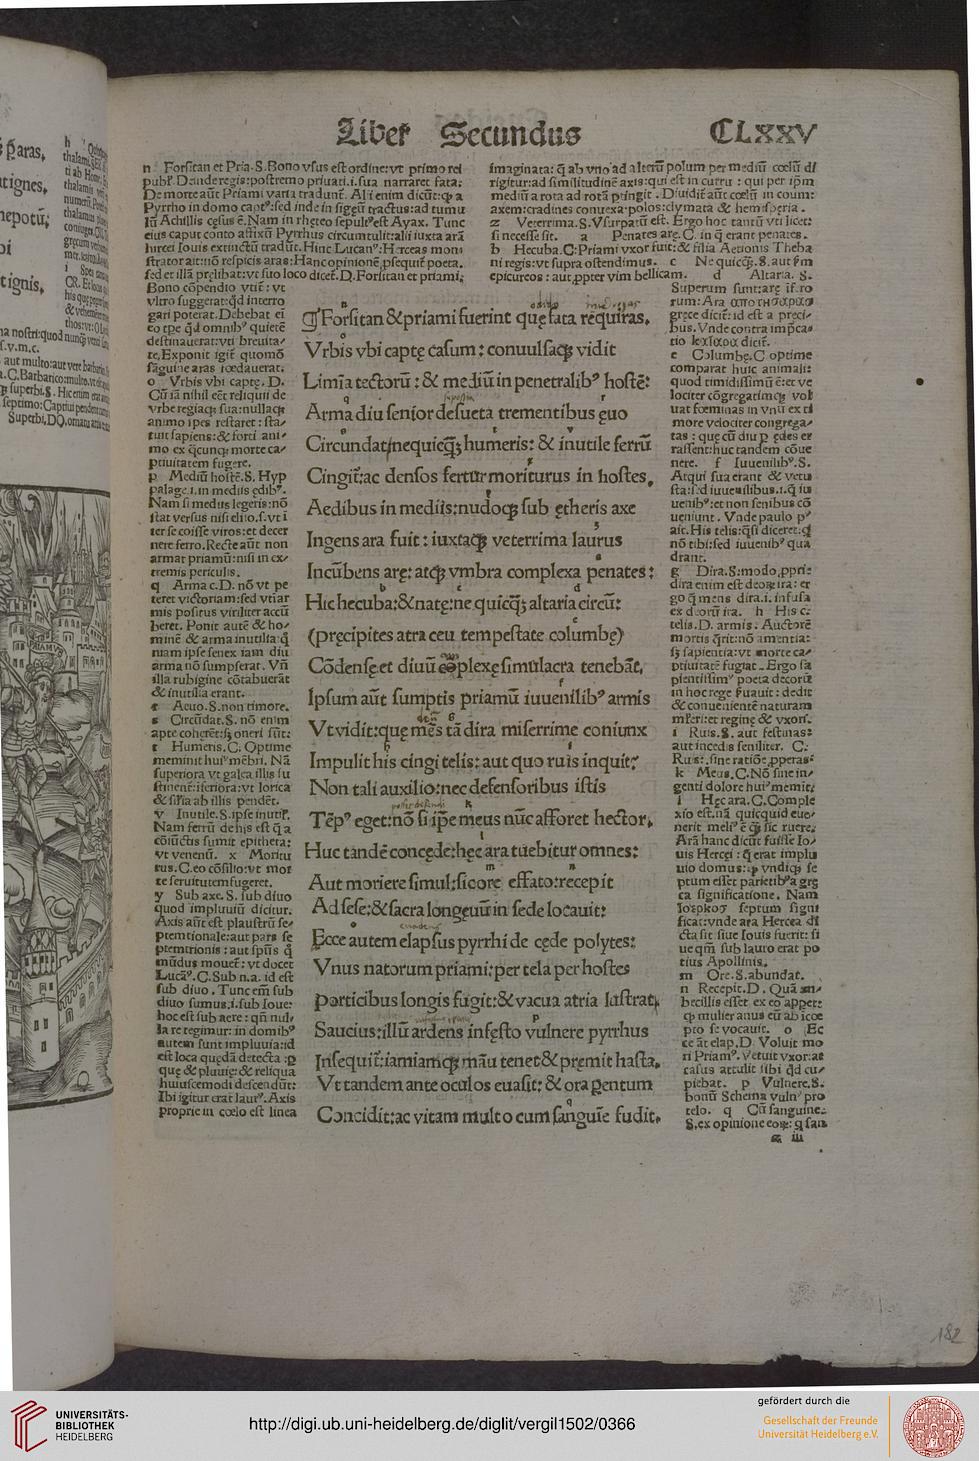 Liber Secundus CLXXV
n Forsitan et Pria.S.Bono vsus est ordine:vt primo rei
publ̄.Deinde regia:postremo priuati.i.sua narraret fata:
De morte aūt Priami varia tradunt̄. Alii enim dicūt:ꝙ a
Pyrrho in domo captꝰ:sed inde in sigeū tractus:ad tumu
lū Achillis cęsus ē.Nam in rhęteo sepultꝰest Ayax. Tunc
eius caput conto affixū Pyrrhus circumtulit:alii iuxta arā
hircei Iouis extinctū tradūt.Hinc Lucanꝰ:Herceas moni
strator ait:nō respicis aras:Hanc opinionē ꝓsequit̄ poeta.
sed et illā pręlibat:vt suo loco dicet̄.D.Forsitan et priami;
Bono cōpendio vtit̄: vt
vltro suggerat:qd̄ interro
gari poterat.Debebat ei
eo tꝑe qd̄ omnibꝰ quietē
destinauerat:vti breuita⸗
te.Exponit igit̄ quomō
sāguine aras foedauerat.
o Vrbis vbi captę. D.
Cū iā nihil eēt reliquii de
vrbe regiaqꝫ sua:nullaqꝫ
animo spes restaret: sta⸗
tuit sapiens:& forti ani⸗
mo ex q̄cunqꝫ morte ca⸗
ptiuitatem fugere.
p Mediū hostē.S. Hyp
palage.i.in mediis ędibꝰ.
Nam si mediis legeris:nō
stat versus nisi elīo.s.vt i
ter se coisse viros:et decer
nere ferro.Recte aūt non
armat priamū:nisi in ex⸗
tremis periculis.
q Arma c.D. nō vt pe
teret victoriam:sed vti ar
mis positus viriliter accū
beret. Ponit autē & ho⸗
minē & arma inutilia:q̄
niam ipse senex iam diu
arma nō sumpserat. Vn̄
illa rubigine cōtabuerāt
& inutilia erant.
r Aeuo.S.non timore.
s Circūdat.S. nō enim
apte cohęrēt:sꝫ oneri sūt:
t Humeris.C. Optime
meminit huiꝰmēbri. Nā
superiora vt galea illis su
stinent̄:iferiora:vt lorica
& sīlia ab illis pendēt.
v Inutile.S.ipse inutil̄.
Nam ferrū de his est q̄ a
cōiūctis sumit epitheta:
vt venenū. x Moritu
rus.C.eo cōsilio:vt mor
te seruitutem fugeret.
y Sub axe.S. sub diuo
quod impluuiū dicitur.
Axis aūt est plaustrū se⸗
ptemtrionale:aut pars se
ptemtrionis : aut spūs q̄
mūdus mouet̄: vt docet
Lucāꝰ.C.Sub n.a. id est
sub diuo. Tunc em̄ sub
diuo sumus.i.sub Ioue:
hoc est sub aere : qn̄ nul⸗
la re tegimur: in domibꝰ
autem sunt impluuia:id
est loca quędā detecta :ꝑ
quę & pluuię:& reliqua
huiuscemodi descendūt:
Ibi igitur erat laurꝰ.Axis
proprie in coelo est linea
imaginata: q̄ ab vno ad alterū polum per mediū coelū di
rigitur:ad similitudinē axis:qui est in curru : qui per ip̄m
mediū a rota ad rotā ꝑtingit . Diuidit aūt coelū in coum:
axem:cradines conuexa:polos:clymata & hemisperia.
z Veterrima.S.Vsurpatū est. Ergo hoc tantū vti licet:
si necesse sit. a Penates arę.C. in q̄ erant penates.
b Hecuba.C:Priami vxor fuit: & filia Aetionis Theba
ni regis:vt supra ostendimus. c Nequicq̄ꝫ.S.aut ꝑm
epicureos : aut ꝓpter vim bellicam. d Altaria. S.
Superum sunt:arę if̄ero
rum:Ara αποτησαρασ
gręce dicit̄:id est a preci⸗
bus.Vnde contra imp̄ca⸗
tio
e Columbę.C optime
comparat huic animali:
quod timidissimū ē:et ve
lociter cōgregatim qꝫ vol
uat foeminas in vnū ex ti
more velociter congrega⸗
tas : quę cū diu ꝑ ędes er
rassent:huc tandem cōue
nere. f Iuuenilibꝰ.S.
Atqui sua erant & vetu
sta:sed iuuenilibus.i.q̄ iu
uenibꝰ:et non senibus cō
ueniunt . Vnde paulo pꝰ
ait.His telis:q̄si diceret:q̄
nō tibi:sed iuuenibꝰ qua
drant.
g Dira.S:modo ꝓprie
dira enim est deorꝫ ira: er
go q̄ mens dira.i. infusa
ex deorū ira. h His c:
telis.D. armis. Auctorē
mortis q̄rit:nō amentia:
sꝫ sapientia:vt morte ca⸗
ptiuitatē fugiat . Ergo sa
pientissimꝰ poeta decorū
in hoc rege s̄uauit: dedit
& conuenientē naturam
mīeri:et reginę & vxori.
i Ruis.S. aut festinas:
aut incedis seniliter. C.
Ruis:.sine ratiōe ꝓperas:
k Meus.C.Nō sine in⸗
genti dolore huiꝰmemīt;
l Hęc ara.C.Comple
xio est.nā quicquid eue⸗
nerit meliꝰ ē q̄ꝫ sic ruere:
Arā hanc dicūt fuisse Io⸗
uis Hercei : q̄ erat implu
uio domus:ꝙ vndiqꝫ se
ptum esset parietibꝰa grę
ca significatione. Nam
septum signi
ficat:vnde ara Hercea di
cta sit siue Iouis fuerit: si
ue qm̄ sub lauro erat po
tius Apollinis.
m Ore.S.abundat.
n Recepit.D . Quā im⸗
becillis esset ex eo apper:
ꝙ mulier anus cū ab icoe
pto se vocauit. o Ec
ce aūt elap.D. Voluit mo
ri Priamꝰ. Vetuit vxor:at
casus attulit sibi qd̄ cu⸗
piebat. p Vulnere.S.
bonū Schema vulnꝰ pro
telo. q Cū sanguine.
S.ex opinione eorꝫ: q san
Forsitan & priami fuerint quę fata requiras.
Vrbis vbi captę casum : conuulsaqꝫ vidit
Limīa tectorū : & mediū in penetralibꝰ hostē:
Arma diu senior desueta trementibus ęuo
Circundat/nequicq̄ꝫ humeris: & inutile ferrū
Cingit̄:ac densos fertur moriturus in hostes.
Aedibus in mediis:nudoqꝫ sub ętheris axe
Ingens ara fuit : iuxtaqꝫ veterrima laurus
Incūbens arę: atqꝫ vmbra complexa penates :
Hic hecuba:& natę:ne quicq̄ꝫ altaria circū:
(pręcipites atra ceu tempestate columbę)
Cōdensę et diuū cōplexę simulacra tenebāt.
Ipsum aūt sumptis priamū iuuenilibꝰ armis
Vt vidit:quę mēs tā dira miserrime coniunx
Impulit his cingi telis: aut quo ruis inquit:
Non tali auxilio:nec defensoribus istis
Tēpꝰ eget:nō si ip̄e meus nūc afforet hector.
Huc tandē concęde:hęc ara tuebitur omnes:
Aut moriere simul:sic ore effato:recepit
Ad sese:& sacra longęuū in sede locauit:
Ecce autem elapsus pyrrhi de cęde polytes:
Vnus natorum priami:per tela per hostes
Porticibus longis fugit:& vacua atria lustrat,
Saucius:illū ardens infęsto vulnere pyrrhus
Insequit̄:iamiamqꝫ māu tenet & premit hasta.
Vt tandem ante oculos euasit: & ora parentum
Concidit:ac vitam multo cum sanguīe fudit.
182
UNIVERSITÄTS-
BIBLIOTHEK
HEIDELBERG
http://digi.ub.uni-heidelberg.de/diglit/vergil1502/0366
gefördert durch die
Gesellschaft der Freunde
Universität Heidelberg e.V.